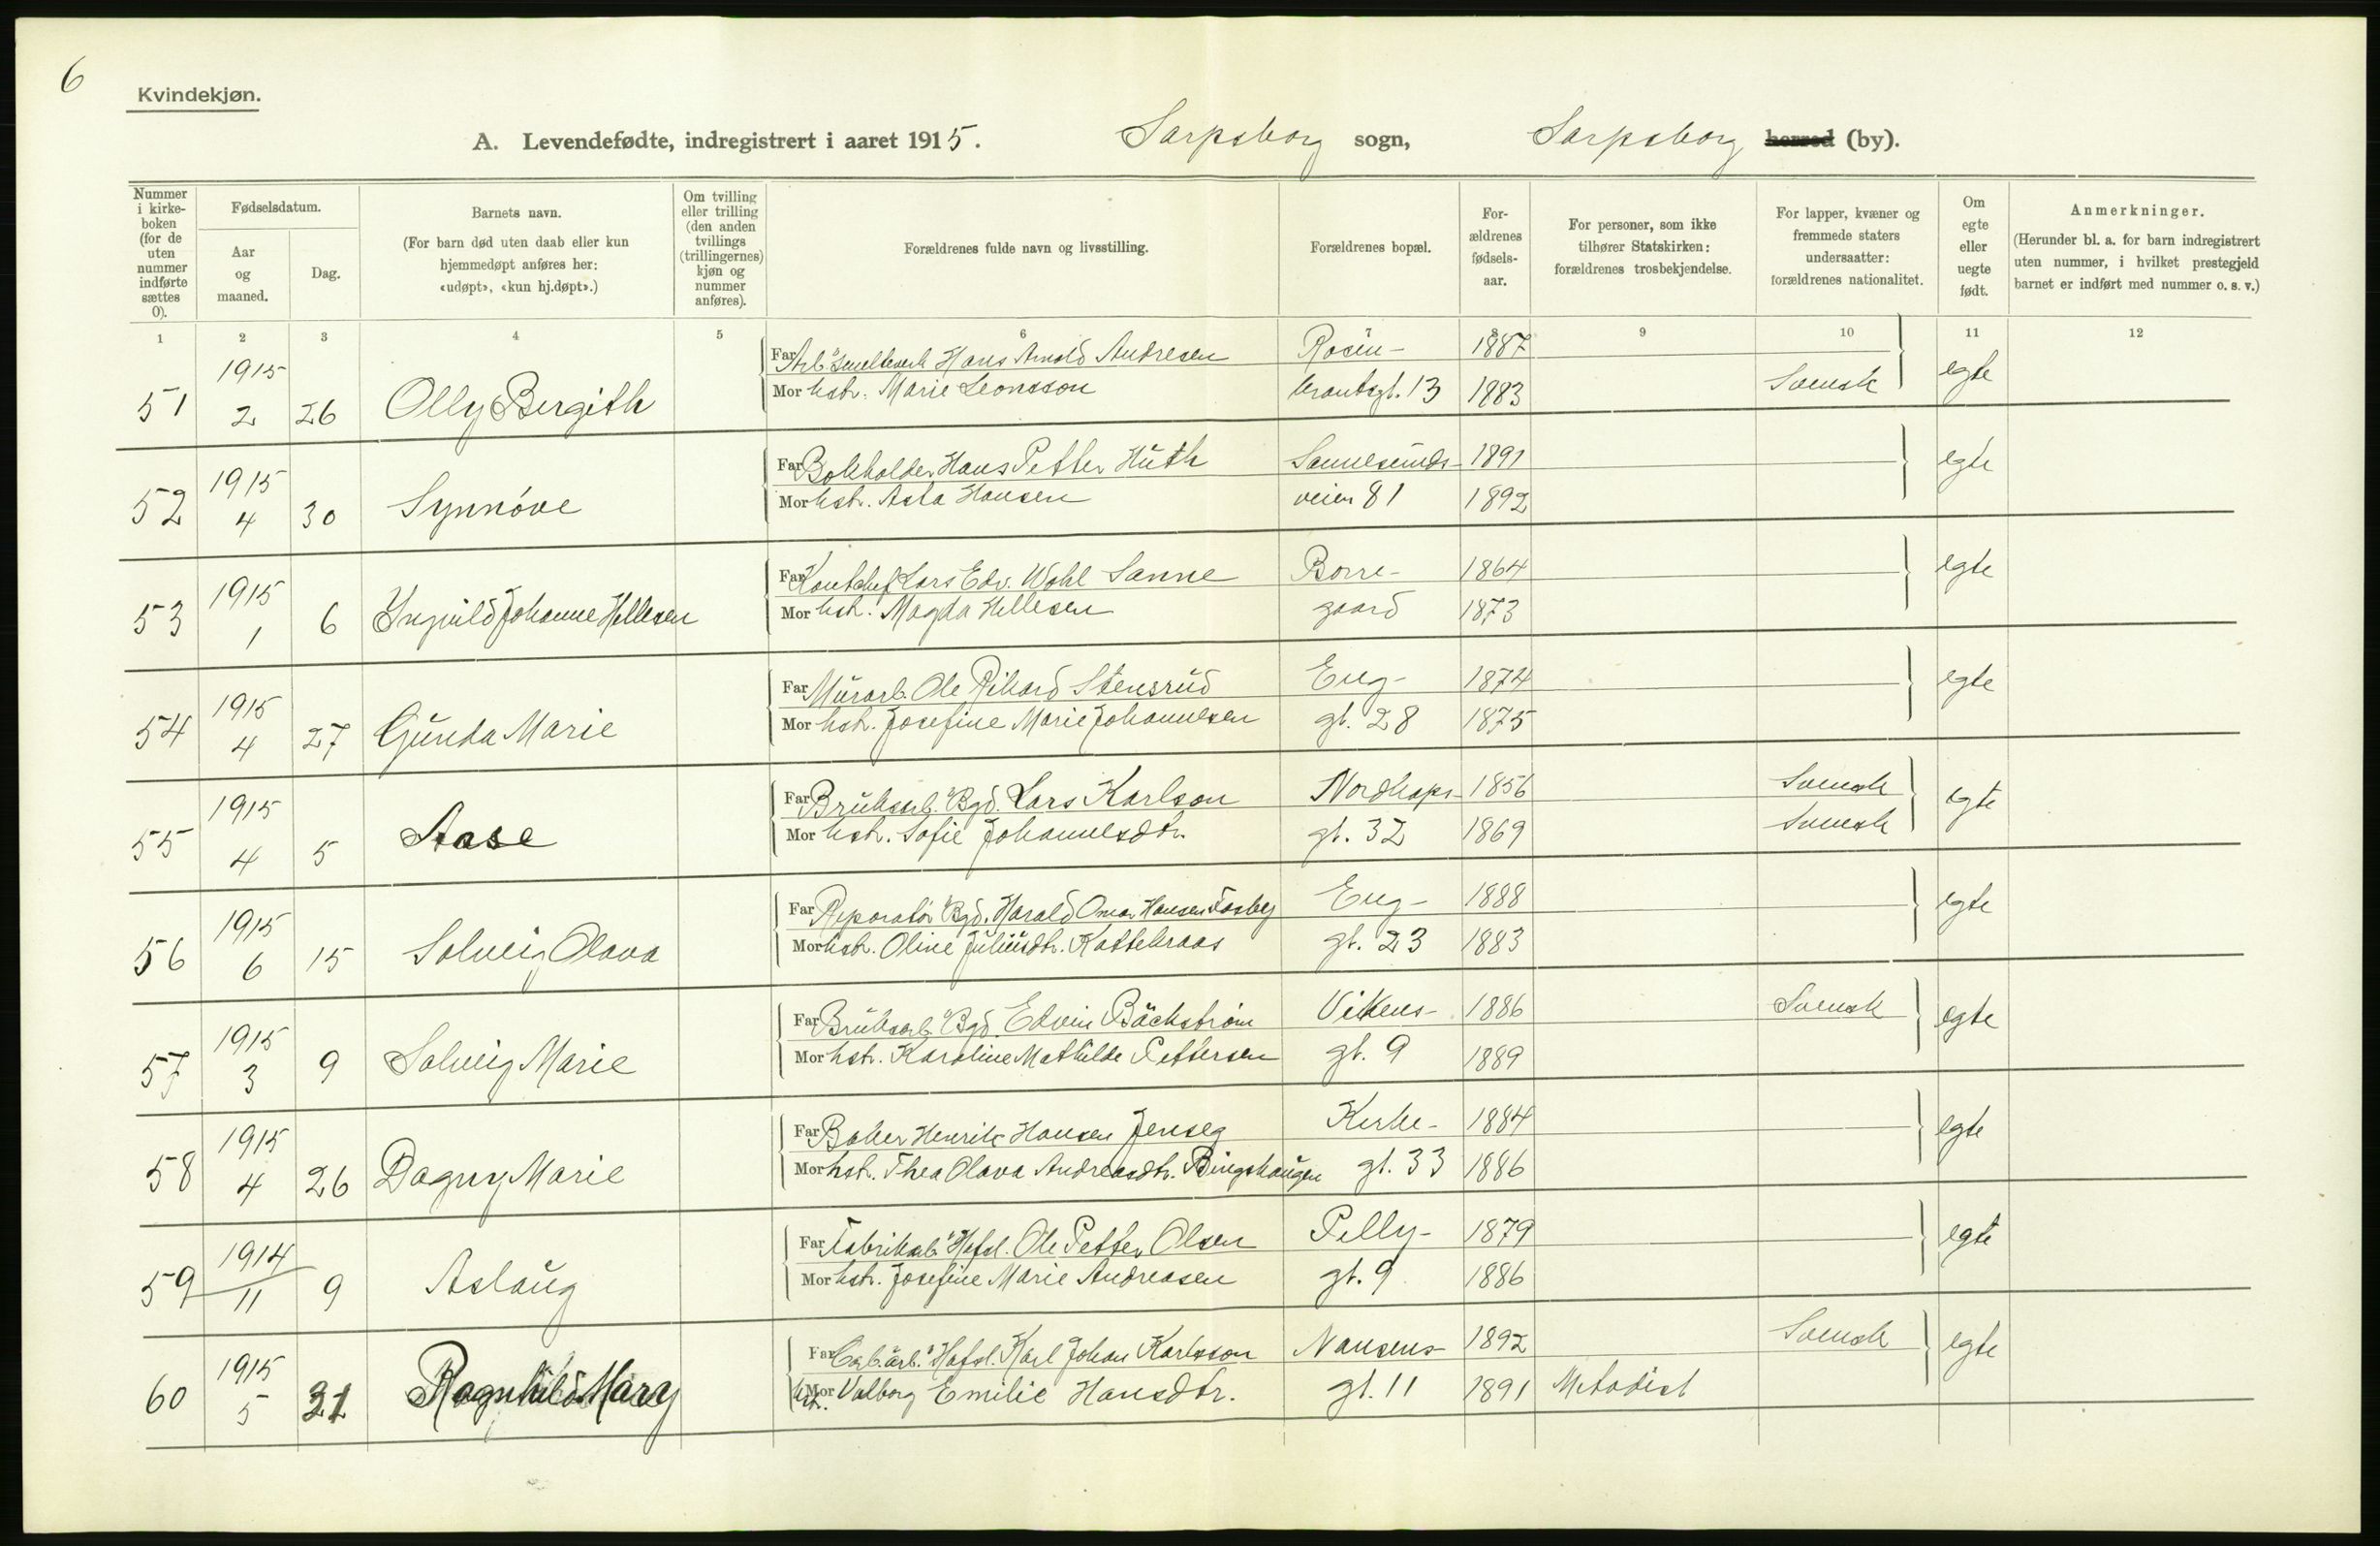 6
Kvindekjøn.
A. Levendefødte, indregistrert i aaret 1915. Sarpsborg sogn, Sarpsborg herred (by).
Nummer i kirke-boken (for de uten nummer indførte sættes 0).
Fødselsdatum.
Aar og maaned.
Dag.
Barnets navn.
(For barn død uten daab eller kun hjemmedøpt anføres her: «udøpt», «kun hj.døpt».)
Om tvilling eller trilling (den anden tvillings (trillingernes) kjøn og nummer anføres).
Forældrenes fulde navn og livsstilling.
Forældrenes bopæl.
For-ældrenes fødsels-aar.
For personer, som ikke tilhører Statskirken: forældrenes trosbekjendelse.
For lapper, kvæner og fremmede staters undersaatter: forældrenes nationalitet.
Om egte eller uegte født.
Anmerkninger.
(Herunder bl. a. for barn indregistrert uten nummer, i hvilket prestegjeld barnet er indført med nummer o. s. v.)
1 2 3 4 5 6 7 8 9 10 11 12
51 1915 2 26 Olly Bergith
Far Arb. Smelteverk Hans Arnold Andresen Rosen- 1887
Mor hstr. Marie Leonsson krantsgt. 13 1883 Svensk egte
52 1915 4 30 Synnøve
Far Bokholder Hans Petter Huth Sannesunds- 1891
Mor hstr. Asta Hansen veien 81 1892 egte
53 1915 1 6 Ingvild Johanne Hellesen
Far Kontchef Lars Edv. Wohl Sanne Borre- 1864
Mor hstr. Magda Hellesen gaard 1873 egte
54 1915 4 27 Gunda Marie
Far Murarb. Ole Rikard Stensrud Eng- 1874
Mor hstr. Josefine Marie Johannesen gt. 28 1875 egte
55 1915 4 5 Aase
Far Bruksarb. Bgd. Lars Karlson Nordkaps- 1856 Svensk
Mor hstr. Sofie Johannesdtr. gt. 32 1869 Svensk egte
56 1915 6 15 Solveig Olava
Far Reparatør Bgd. Harald Omar Hansen Fosby Eng- 1888
Mor hstr. Oline Juliusdtr. Kattebraas gt. 23 1883 egte
57 1915 3 9 Solveig Marie
Far Bruksarb. Bgd. Edvin Bäckstrøm Vikens- 1886 Svensk
Mor hstr. Karoline Mathilde Pettersen gt. 9 1889 egte
58 1915 4 26 Dagny Marie
Far Baker Henrik Hansen Jenseg Kirke- 1884
Mor hstr. Thea Olava Andreasdtr. Bingshaugen gt. 33 1886 egte
59 1914 11 9 Aslaug
Far Fabrikarb. Hafsl. Ole Petter Olsen Pelly- 1879
Mor hstr. Josefine Marie Andreasen gt. 9 1886 egte
60 1915 5 31 Ragnhild Mary
Far Carb. arb. Hafsl. Karl Johan Karlsson Nansens- 1892 Svensk
Mor hst. Valborg Emilie Hansdtr. gt. 11 1891 Metodist egte